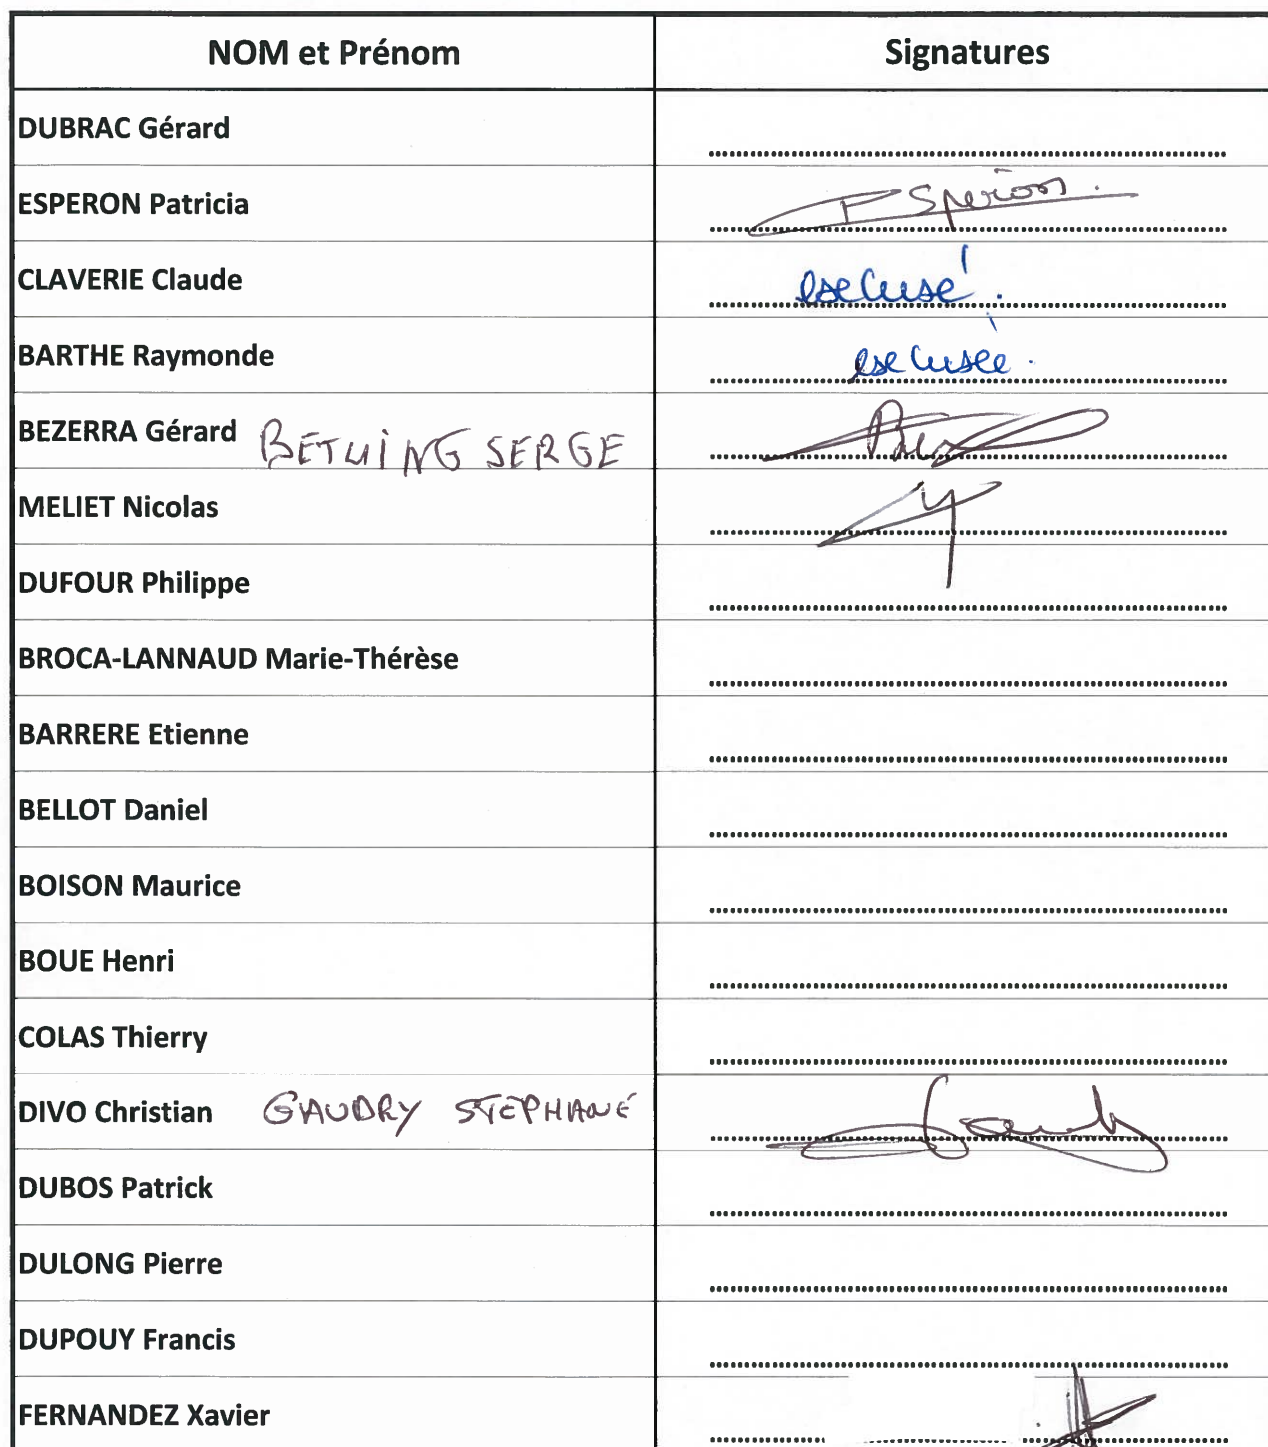 NOM et Prénom Signatures
DUBRAC Gérard
ESPERON Patricia Esperon.
CLAVERIE Claude excusé.
BARTHE Raymonde excusée.
BEZERRA Gérard BETUING SERGE
MELIET Nicolas
DUFOUR Philippe
BROCA-LANNAUD Marie-Thérèse
BARRERE Etienne
BELLOT Daniel
BOISON Maurice
BOUE Henri
COLAS Thierry
DIVO Christian GAUDRY STÉPHANE
DUBOS Patrick
DULONG Pierre
DUPOUY Francis
FERNANDEZ Xavier